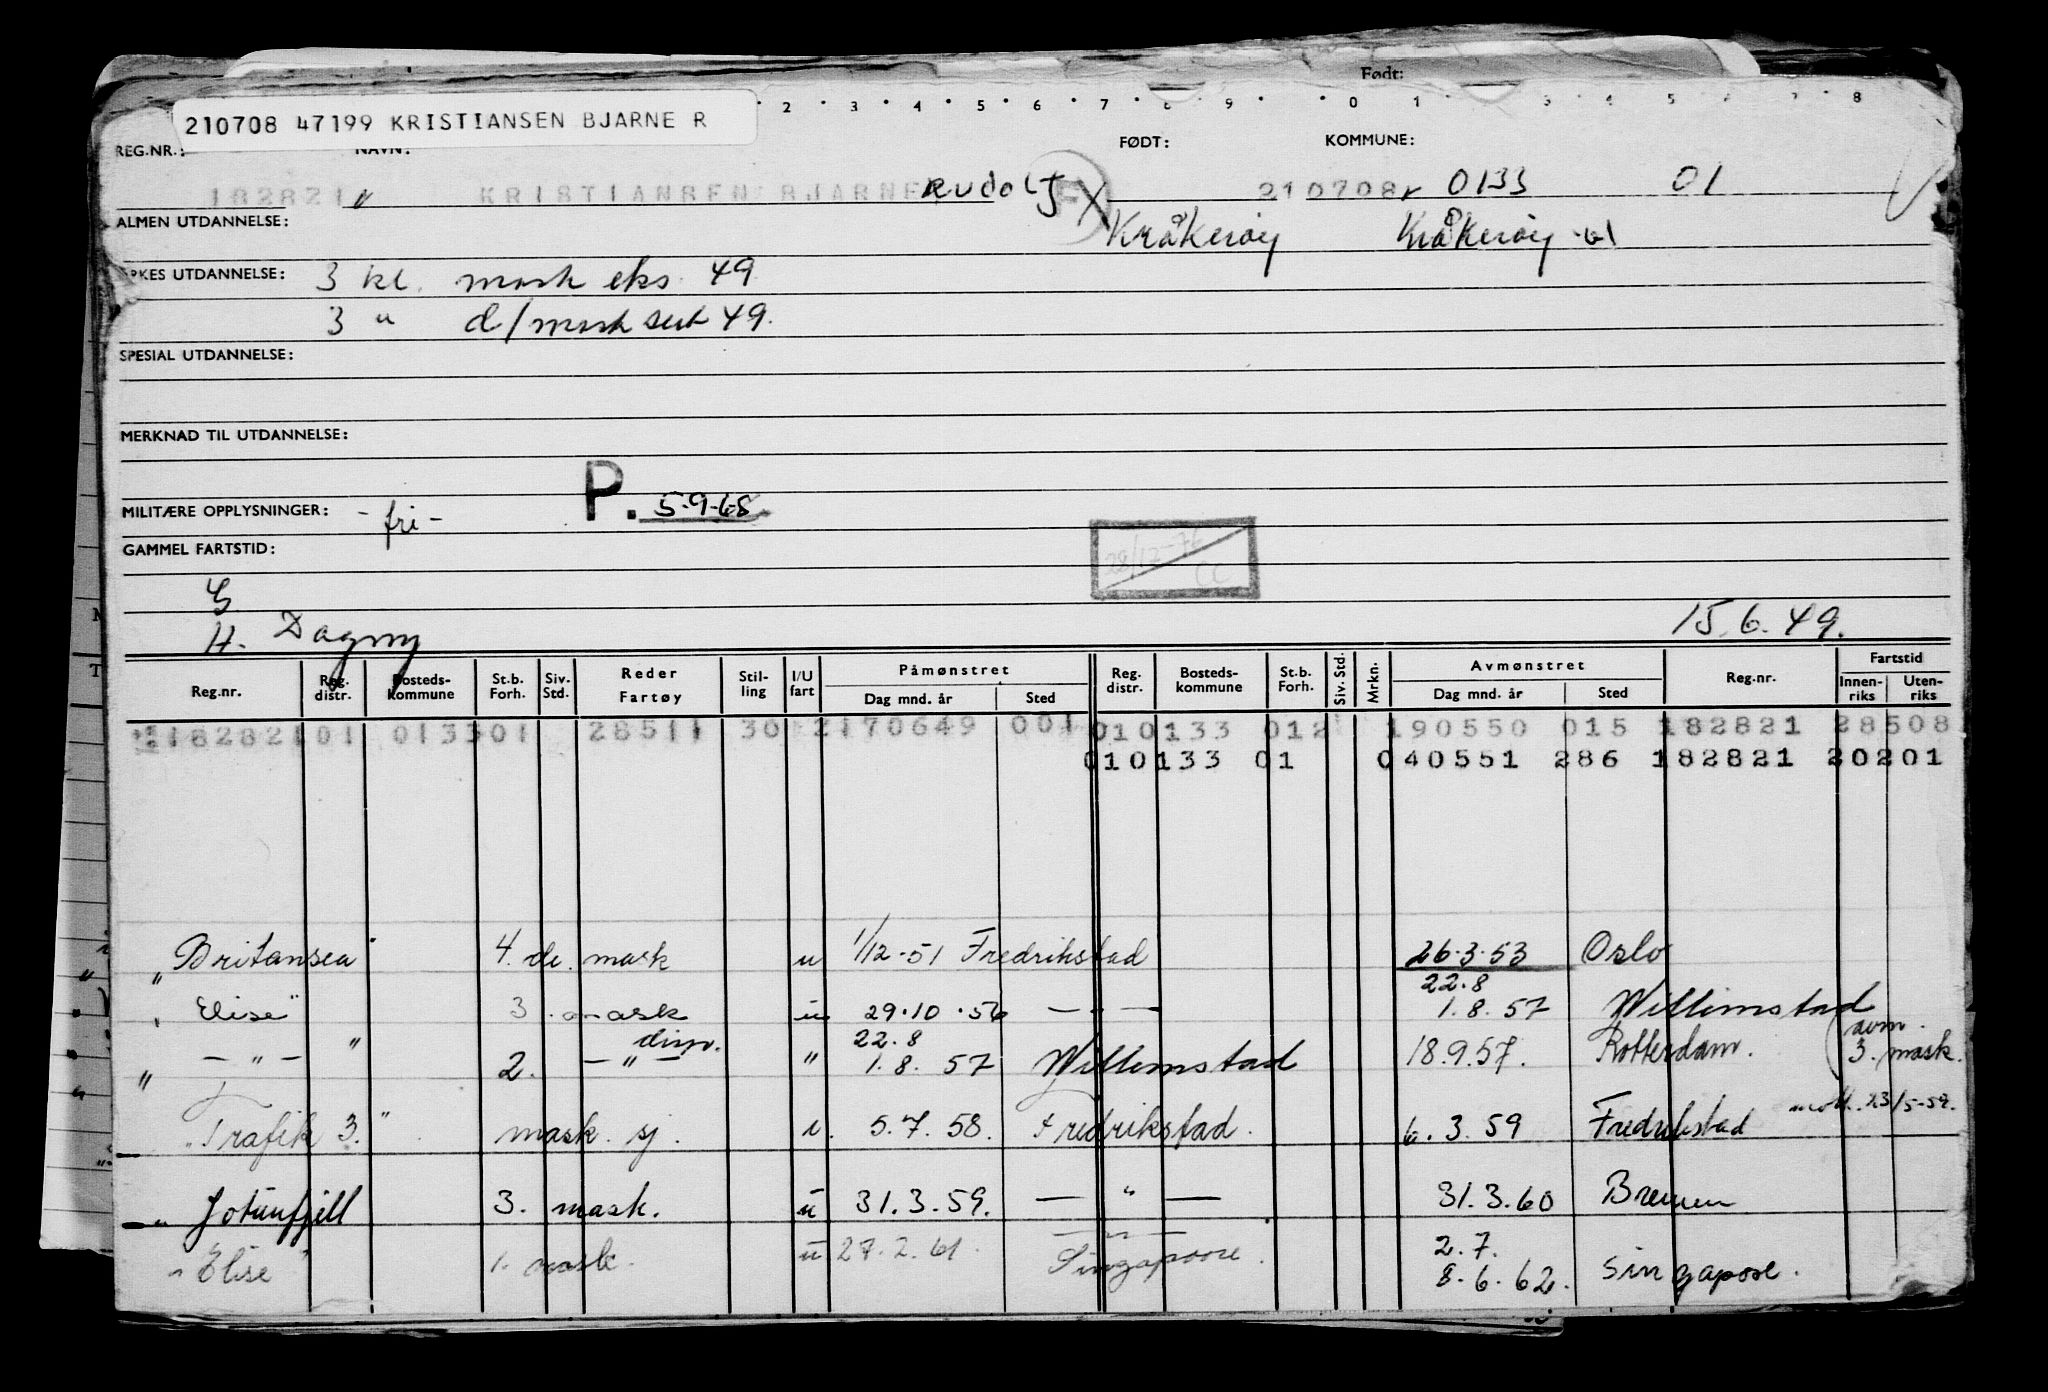 Født:
2 3 4 5 6 7 8 9 0 1 3 4 5 8
210708 47199 KRISTIANSEN BJARNE R
REG.NR.: NAVN: FØDT: KOMMUNE:
182821 " KRISTIANSEN BJARNE Rudolf 210708 0133 01
ALMEN UTDANNELSE: Kråkerøy Kråkerøy -61
YRKES UTDANNELSE: 3 kl. mask eks. 49
3 " d/mask sert 49.
SPESIAL UTDANNELSE:
MERKNAD TIL UTDANNELSE:
MILITÆRE OPPLYSNINGER: - fri - P. 5-9-68
GAMMEL FARTSTID: 28/12-76
CC
G
H. Dagny 15.6.49.
Reg.nr. Reg. distr. Bosteds-kommune St.b. Forh. Siv. Std. Reder Fartøy Stil-ling I/U fart Påmønstret Dag mnd. år Sted Reg. distr. Bosteds-kommune St.b. Forh. Siv. Std. Mrkn. Avmønstret Dag mnd. år Sted Reg.nr. Fartstid Innen-riks Uten-riks
182821 01 0133 01 28511 30 2 170649 001 01 0133 012 190550 015 182821 28508
01 0133 01 040551 286 182821 20201
" Britansea 4. de. mask u 1/12-51 Fredrikstad 26.3.53 Oslo
22.8
" Elise" 3. mask u 29.10.56 — " — 1.8.57 Willemstad
disp. 22.8 avm.
" — " — " 2. — " — " 1.8.57 Willemstad 18.9.57. Rotterdam. 3. mask.
mott. 23/5-59.
"Trafik 3." mask. sj. u. 5.7.58. Fredrikstad. 6.3.59 Fredrikstad
" Jotunfjell 3. mask. u 31.3.59. — " — 31.3.60 Bremen
2.7.
" Elise" 1. mask. u 27.2.61. Singapore. 8.6.62. Singapore.